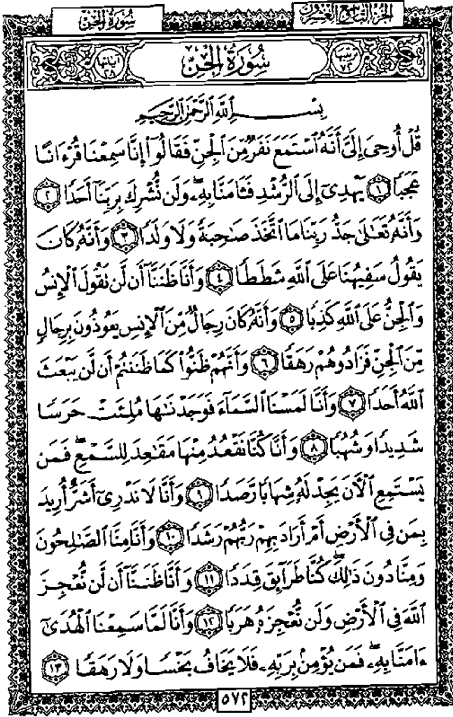 سُورَةُ الجِنّ
الجُزْءُ التَّاسِعُ وَالعِشْرُونَ
آياتها ٢٨
سُورَةُ الجِنّ
ترتيبها ٧٢
بِسْمِ اللَّهِ الرَّحْمَٰنِ الرَّحِيمِ
قُلْ أُوحِيَ إِلَيَّ أَنَّهُ ٱسْتَمَعَ نَفَرٌ مِّنَ ٱلْجِنِّ فَقَالُوٓا۟ إِنَّا سَمِعْنَا قُرْءَانًا
عَجَبًا ١ يَهْدِىٓ إِلَى ٱلرُّشْدِ فَـَٔامَنَّا بِهِۦ وَلَن نُّشْرِكَ بِرَبِّنَآ أَحَدًا ٢
وَأَنَّهُۥ تَعَٰلَىٰ جَدُّ رَبِّنَا مَا ٱتَّخَذَ صَٰحِبَةً وَلَا وَلَدًا ٣ وَأَنَّهُۥ كَانَ
يَقُولُ سَفِيهُنَا عَلَى ٱللَّهِ شَطَطًا ٤ وَأَنَّا ظَنَنَّآ أَن لَّن تَقُولَ ٱلْإِنسُ
وَٱلْجِنُّ عَلَى ٱللَّهِ كَذِبًا ٥ وَأَنَّهُۥ كَانَ رِجَالٌ مِّنَ ٱلْإِنسِ يَعُوذُونَ بِرِجَالٍ
مِّنَ ٱلْجِنِّ فَزَادُوهُمْ رَهَقًا ٦ وَأَنَّهُمْ ظَنُّوا۟ كَمَا ظَنَنتُمْ أَن لَّن يَبْعَثَ
ٱللَّهُ أَحَدًا ٧ وَأَنَّا لَمَسْنَا ٱلسَّمَآءَ فَوَجَدْنَٰهَا مُلِئَتْ حَرَسًا
شَدِيدًا وَشُهُبًا ٨ وَأَنَّا كُنَّا نَقْعُدُ مِنْهَا مَقَٰعِدَ لِلسَّمْعِ فَمَن
يَسْتَمِعِ ٱلْـَٔانَ يَجِدْ لَهُۥ شِهَابًا رَّصَدًا ٩ وَأَنَّا لَا نَدْرِىٓ أَشَرٌّ أُرِيدَ
بِمَن فِى ٱلْأَرْضِ أَمْ أَرَادَ بِهِمْ رَبُّهُمْ رَشَدًا ١٠ وَأَنَّا مِنَّا ٱلصَّٰلِحُونَ
وَمِنَّا دُونَ ذَٰلِكَ كُنَّا طَرَآئِقَ قِدَدًا ١١ وَأَنَّا ظَنَنَّآ أَن لَّن نُّعْجِزَ
ٱللَّهَ فِى ٱلْأَرْضِ وَلَن نُّعْجِزَهُۥ هَرَبًا ١٢ وَأَنَّا لَمَّا سَمِعْنَا ٱلْهُدَىٰٓ
ءَامَنَّا بِهِۦ فَمَن يُؤْمِنۢ بِرَبِّهِۦ فَلَا يَخَافُ بَخْسًا وَلَا رَهَقًا ١٣
٥٧٢